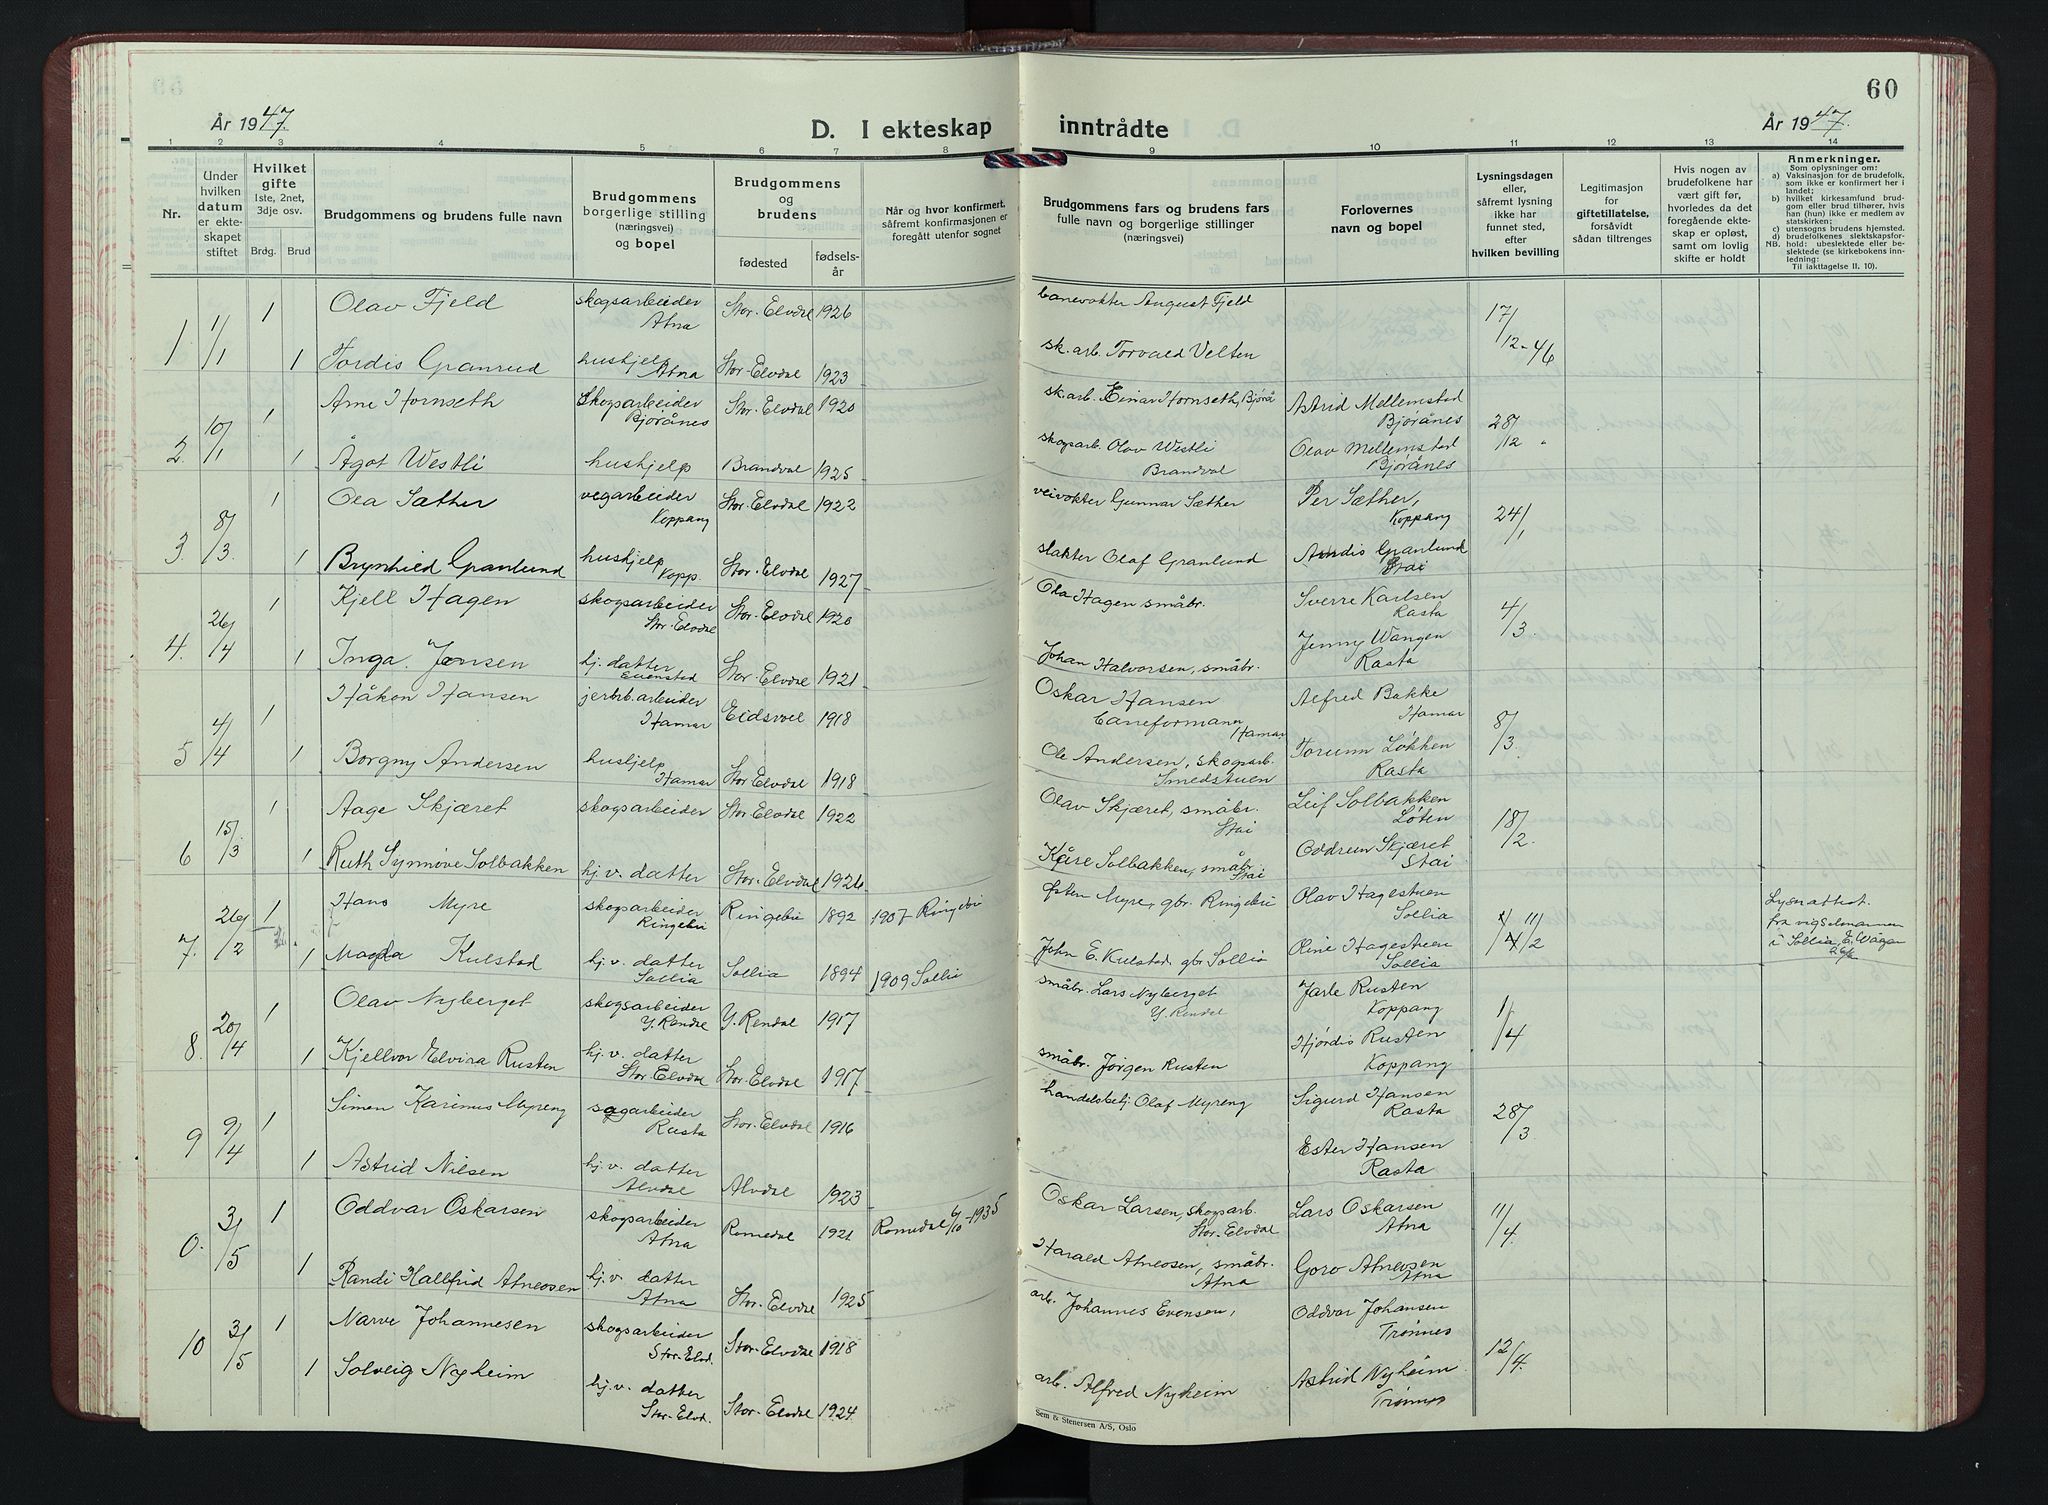 60
År 1947.
D. I ekteskap inntrådte
År 1947.
1 2 3 4 5 6 7 8 9 10 11 12 13 14
Nr.
Under hvilken datum er ekteskapet stiftet
Hvilket gifte
1ste, 2net, 3dje osv.
Brdg. Brud
Brudgommens og brudens fulle navn
Brudgommens borgerlige stilling (næringsvei) og bopel
Brudgommens og brudens
fødested
fødselsår
Når og hvor konfirmert, såfremt konfirmasjonen er foregått utenfor sognet
Brudgommens fars og brudens fars fulle navn og borgerlige stillinger (næringsvei)
Forlovernes navn og bopel
Lysningsdagen eller, såfremt lysning ikke har funnet sted, efter hvilken bevilling
Legitimasjon for giftetillatelse, forsåvidt sådan tiltrenges
Hvis nogen av brudefolkene har vært gift før, hvorledes da det foregående ekteskap er opløst, samt om lovlig skifte er holdt
Anmerkninger.
Som oplysninger om:
a) Vaksinasjon for de brudefolk, som ikke er konfirmert her i landet;
b) hvilket kirkesamfund brudgom eller brud tilhører, hvis han (hun) ikke er medlem av statskirken;
c) utensogns brudens hjemsted.
d) brudefolkenes slektskapsforhold: ubeslektede eller beslektede (se kirkebokens innledning:
NB. Til iakttagelse II. 10).
1 1/1 1 Olav Fjeld skogsarbeider Atna Stor-Elvdal 1926 banevokter August Fjeld 17/12-46
1 Tordis Granrud hushjelp Atna Stor-Elvdal 1923 sk.arb. Torvald Velten
2. 10/1 1 Arne Hornseth Skogsarbeider Bjørånes Stor-Elvdal 1920 sk.arb. Einar Hornseth, Bjørå Astrid Mellemstad Bjørånes 28/12 "
1 Ågot Westli hushjelp Brandval 1925 skogsarb. Olav Westli Brandval Olav Mellemstad Bjørånes
3 8/3 1 Ola Sæther vegarbeider Koppang Stor-Elvdal 1922 veivokter Gunnar Sæther Per Sæther, Koppang 24/1
1 Brynhild Granlund hushjelp Kopp. Stor-Elvdal 1927 slakter Olaf Granlund Arndis Granlund Stai
4. 26/4 1 Kjell Hagen skogsarbeider Stor-Elvdal Stor-Elvdal 1920 Ola Hagen småbr. Sverre Karlsen Rasta 4/3.
1 Inga Jensen hj. datter Evenstad Stor-Elvdal 1921 Johan Halvorsen, småbr. Jenny Wangen Rasta
5 4/4 1 Håkon Hansen jernb.arbeider Hamar Eidsvoll 1918 Oskar Hansen baneformann Hamar Alfred Bakke Hamar 8/3.
1 Borgny Andersen hushjelp Hamar Stor-Elvdal 1918 Ole Andersen, skogsarb. Smedstuen Torunn Løkken Rasta
6 15/3. 1 Aage Skjæret skogsarbeider Stor-Elvdal 1922 Olav Skjæret, småbr. Stai Leif Solbakken Løten 18/2.
1 Ruth Synnøve Solbakken hj.v. datter Stor-Elvdal 1926 Kåre Solbakken, småbr. Stai Oddrun Skjæret Stai
7. 26/2 1 Hans Myre skogsarbeider Ringebu Ringebu 1892 1907 Ringebu Østen Myre, gbr. Ringebu Olav Hagestuen Sollia 11/2 Lysn.attest. fra vigselmannen i Sollia, E. Vågen
1 Magda Kulstad hj.v. datter Sollia Sollia 1894 1909 Sollia John E. Kulstad gbr Sollia Oline Hagestuen Sollia
8. 20/4 1 Olav Nyberget skogsarbeider Y. Rendal Y. Rendal 1917 småbr. Lars Nyberget Y. Rendal Jarle Rusten Koppang 1/4
1 Kjellvor Elvira Rusten hj.v. datter Stor-Elvdal Stor-Elvdal 1917 småbr. Jørgen Rusten Hjørdis Rusten Koppang
9 9/4 1 Simen Karinus Myreng sagarbeider Rasta Stor-Elvdal 1916 handelsbetj. Olaf Myreng Sigurd Hansen Rasta 28/3.
1 Astrid Nilsen hj.v. datter Alvdal Alvdal 1923 Ester Hansen Rasta
0. 3/5 1 Oddvar Oskarsen skogsarbeider Atna Romedal 1921 Romedal 6/10-1935 Oskar Larsen, skogsarb. Stor-Elvdal Lars Oskarsen Atna 11/4.
1 Randi Hallfrid Atneosen hj.v. datter Atna Stor-Elvdal 1925 Harald Atneosen, småbr. Atna Goro Atneosen Atna
10 3/5 1 Narve Johannesen skogsarbeider Stor-Elvd. Stor-Elvdal 1918 arb. Johannes Evensen, Oddvar Johansen Trønnes 12/4.
1 Solveig Nyheim hj.v. datter Stor-Elvd. Stor-Elvdal 1924. arb. Alfred Nyheim Astrid Nyheim Trønnes
Sem & Stenersen A/S, Oslo